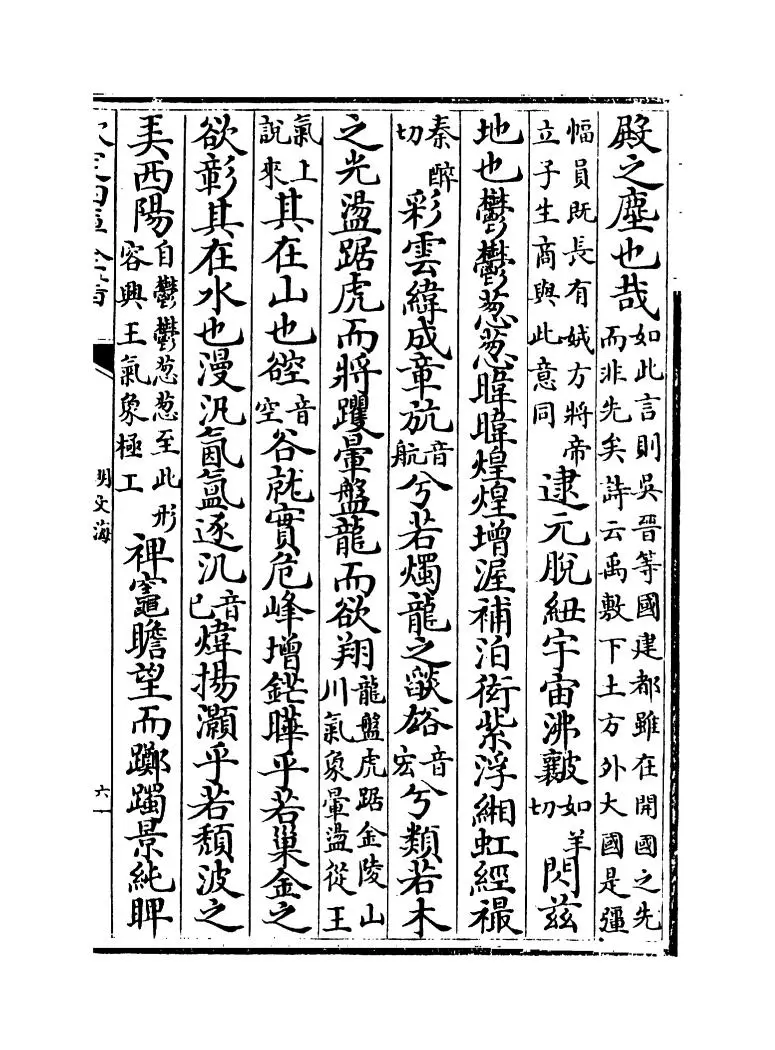 殿之塵也哉如此言則吳晉等國建都雖在開國之先
而非先矣詩云禹敷下土方外大國是疆
幅員既長有娀方將帝
立子生商與此意同
逮元脫紐宇宙沸如羊切閃茲
地也鬱鬱葱葱暐暐煌煌增渥補泊衒紫浮緗虹經襊
秦醉切彩雲緯成章音航兮若燭龍之燄音宏兮類若木
之光盪踞虎而將躩暈盤龍而欲翔龍盤虎踞金陵山
川氣象暈盪從王
氣上說來其在山也音空谷就實危峰增鋩曄乎若巢金之
欲彰其在水也漫汎氤氲逐汜音已煒揚灝乎若頹波之
美西陽自鬱鬱葱葱至此形
容興王氣象極工
裨竈瞻望而躑躅景純睥
明文海
六